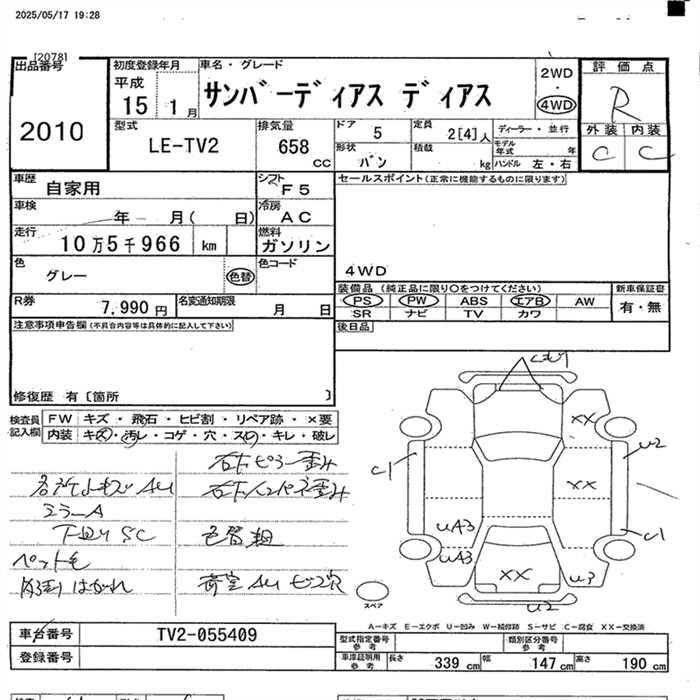 2025/05/17 19:28
[2078]
出品番号
2010
初度登録年月
平成
15 年 1 月
車名・グレード
サンバーディアス ディアス
2WD
・
4WD
評価点
R
外装 内装
C C
型式
LE-TV2
排気量
658 CC
ドア 5
形状 バン
定員 2[4]人
積載 kg
ディーラー・並行
モデル年式 年
ハンドル 左・右
車歴
自家用
シフト F5
車検
年 月( 日)
冷房 AC
走行
10万5千966 km
燃料
ガソリン
色
グレー
色替
色コード
R券
7,990 円
名変通知期限
月 日
セールスポイント(正常に機能するものに限ります)
4WD
装備品 (純正品に限り○をつけてください)
PS PW ABS エアB AW
SR ナビ TV カワ
新車保証書
有・無
後日品
注意事項申告欄(不具合内容等は具体的に記入して下さい)
修復歴 有〔箇所 〕
検査員記入欄
FW キズ・飛石・ヒビ割・リペア跡・×要
内装 キズ・汚レ・コゲ・穴・スレ・キレ・破レ
右Fピラー歪み
各所よもぎAU
右Fインパネ歪み
ミラーA
下回りSC
色替 細
ペット毛
内張はがれ
荷室AU ビス穴
くもり
XX
U2
C1
XX
C1
UA3
UA3
XX
U3
U2
スペア
A−キズ E−エクボ U−凹み W−補修跡 S−サビ C−腐食 XX−交換済
車台番号 TV2-055409
登録番号
型式指定番号
参考
類別区分番号
参考
車庫証明用
参考
長さ 339 cm 幅 147 cm 高さ 190 cm